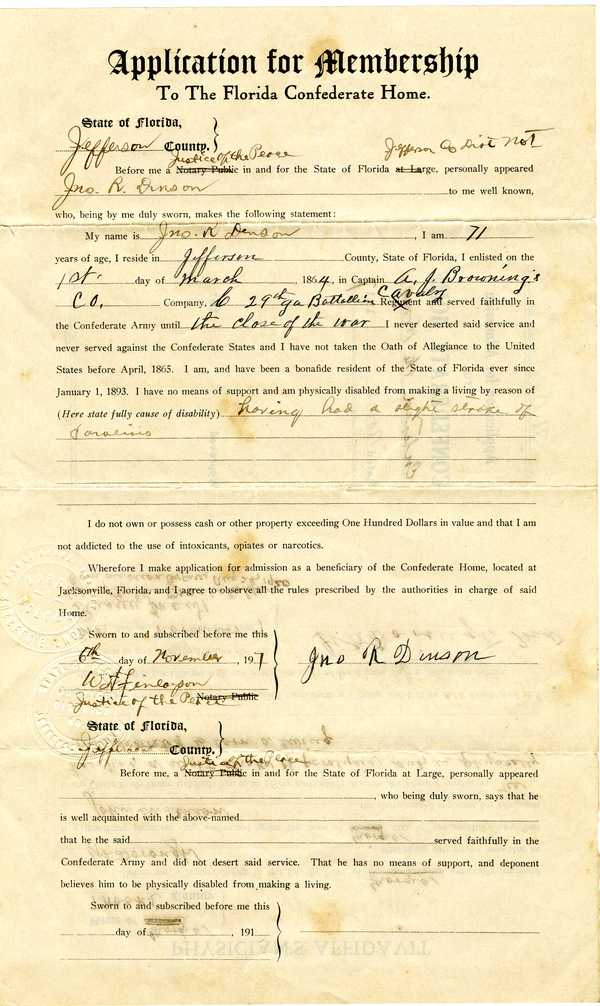 Application for Membership
To The Florida Confederate Home.
State of Florida,
Jefferson County.
Justice of the Peace Jefferson Co Dist No 1
Before me a Notary Public in and for the State of Florida at Large, personally appeared
Jno. R. Dinson to me well known,
who, being by me duly sworn, makes the following statement:
My name is Jno. R Denson, I am 71
years of age, I reside in Jefferson County, State of Florida, I enlisted on the
1st. day of March, 1864, in Captain A. J. Browning's
Co. Company, C 29th Ga Battallion Cavalry Regiment and served faithfully in
the Confederate Army until the close of the war I never deserted said service and
never served against the Confederate States and I have not taken the Oath of Allegiance to the United
States before April, 1865. I am, and have been a bonafide resident of the State of Florida ever since
January 1, 1893. I have no means of support and am physically disabled from making a living by reason of
(Here state fully cause of disability) having had a slight stroke of
I do not own or possess cash or other property exceeding One Hundred Dollars in value and that I am
not addicted to the use of intoxicants, opiates or narcotics.
Wherefore I make application for admission as a beneficiary of the Confederate Home, located at
Jacksonville, Florida, and I agree to observe all the rules prescribed by the authorities in charge of said
Home.
Sworn to and subscribed before me this
6th day of November, 1917 Jno R Dinson
W. A. Finlayson
Justice of the Peace Notary Public
State of Florida,
Jefferson County.
Justice of the Peace
Before me, a Notary Public in and for the State of Florida at Large, personally appeared
, who being duly sworn, says that he
is well acquainted with the above-named
that he the said served faithfully in the
Confederate Army and did not desert said service. That he has no means of support, and deponent
believes him to be physically disabled from making a living.
Sworn to and subscribed before me this
day of , 191